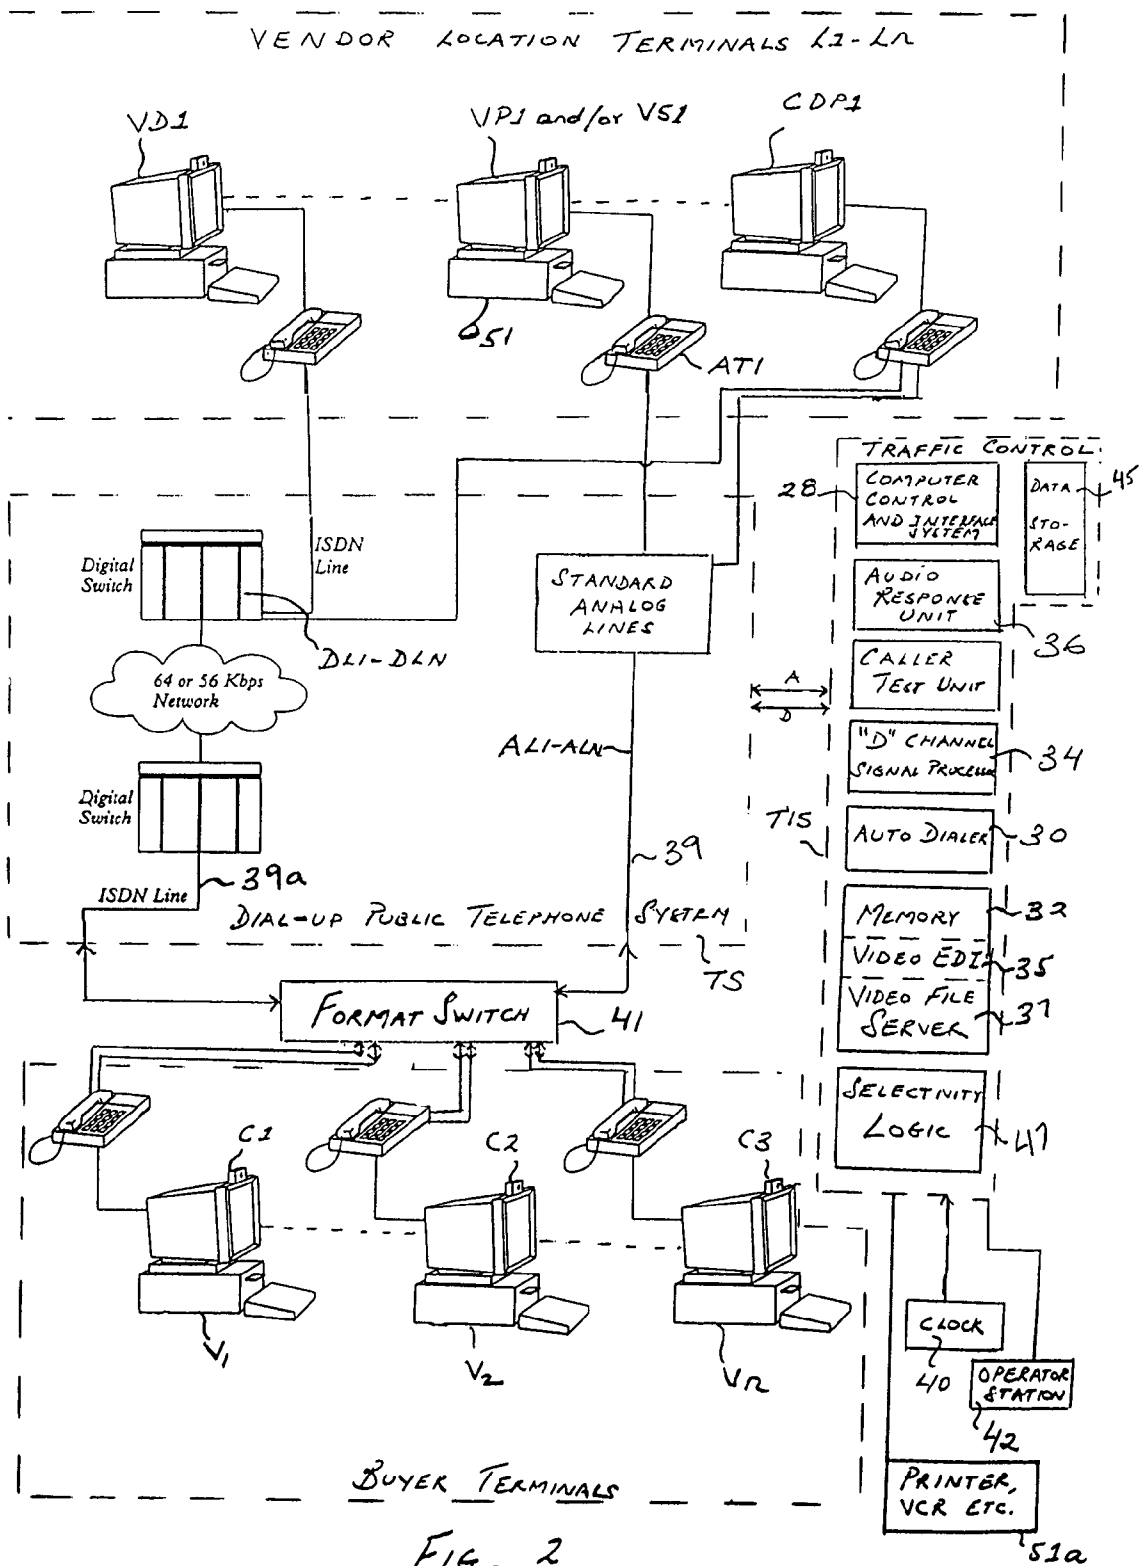 VENDOR LOCATION TERMINALS L1-Ln
VD1
VP1 and/or VS1
CDP1
51
AT1
TRAFFIC CONTROL
28
COMPUTER
CONTROL
AND INTERFACE
SYSTEM
DATA
STO-
RAGE
45
Digital
Switch
ISDN
Line
STANDARD
ANALOG
LINES
AUDIO
RESPONSE
UNIT
36
DL1-DLN
64 or 56 Kbps
Network
CALLER
TEST UNIT
A
D
AL1-ALN
"D" CHANNEL
SIGNAL PROCESSOR
34
Digital
Switch
T1S
AUTO DIALER
30
39
39a
ISDN Line
DIAL-UP PUBLIC TELEPHONE SYSTEM
TS
MEMORY
32
VIDEO EDIT
35
VIDEO FILE
SERVER
37
FORMAT SWITCH
41
SELECTIVITY
LOGIC
47
C1
C2
C3
V1
V2
Vn
CLOCK
40
OPERATOR
STATION
42
BUYER TERMINALS
PRINTER,
VCR ETC.
51a
FIG. 2